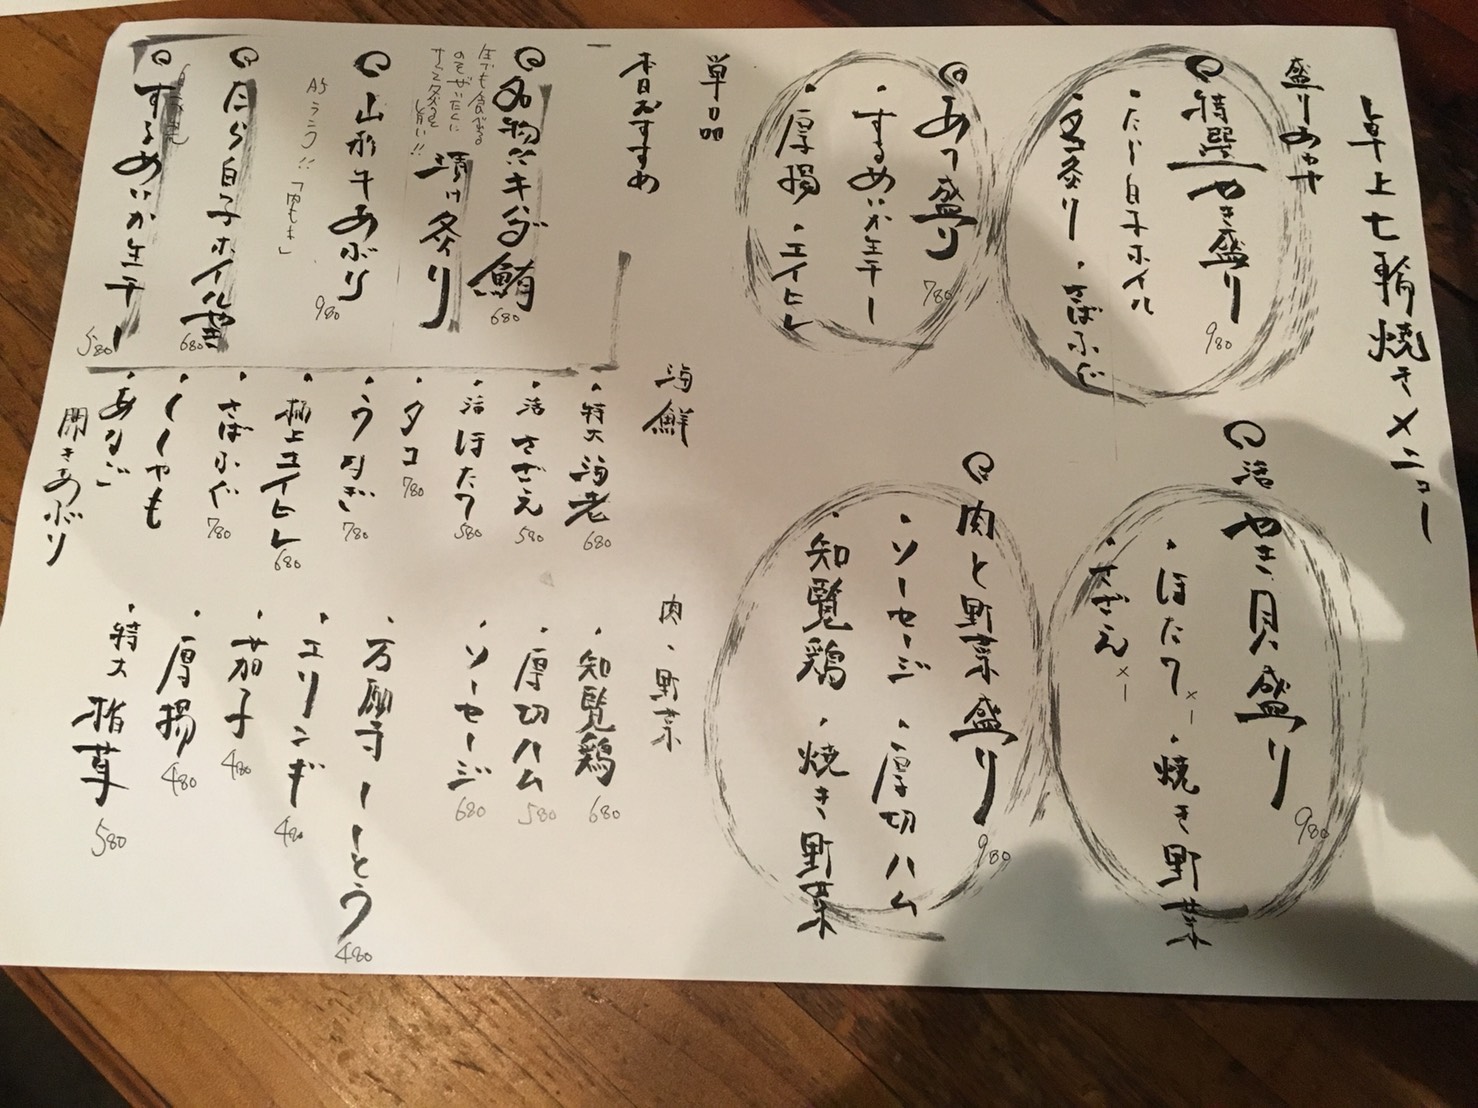 卓上七輪焼きメニュー
盛りあわせ
特選やき盛り 980
・たら白子ホイル
炙り ・さばふぐ
あて盛り 780
・するめいか生干し
・厚揚 ・エイヒレ
活やき貝盛り 980
・ほたて×一 ・焼き野菜
・さざえ×一
肉と野菜盛り 980
・ソーセージ ・厚切ハム
・知覧鶏 ・焼き野菜
単品
本日おすすめ
名物 キハダ鮪 680
漬け炙り
生でも食べれる
のをぜいたくに
旨い!!
山形牛あぶり 980
A5ランク!!「内もも」
たら白子ホイル焼き 680
するめいか生干し 580
海鮮
・特大海老 680
・活さざえ 580
・活ほたて 580
・タコ 780
・うなぎ 780
・極上エイヒレ 680
・さばふぐ 780
・ししゃも
・あなご
開きあぶり
肉・野菜
・知覧鶏 680
・厚切ハム 580
・ソーセージ 680
・万願寺しとう 480
・エリンギ 480
・茄子 480
・厚揚 480
・特大椎茸 580